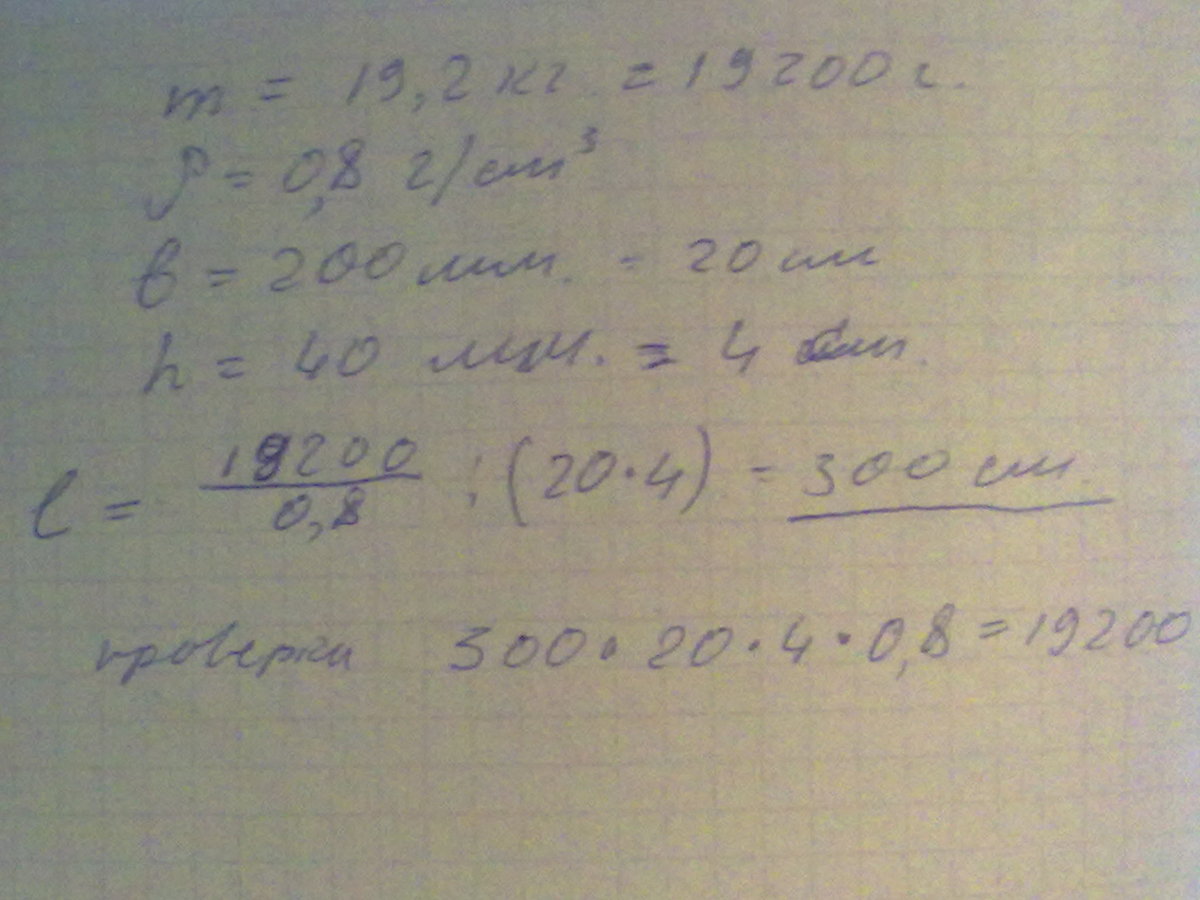 m = 19,2 кг. = 19200 г.
ρ = 0,8 г/см³
b = 200 мм. = 20 см
h = 40 мм. = 4 см.
l = 19200/0,8 : (20·4) = 300 см.
проверка 300·20·4·0,8 = 19200